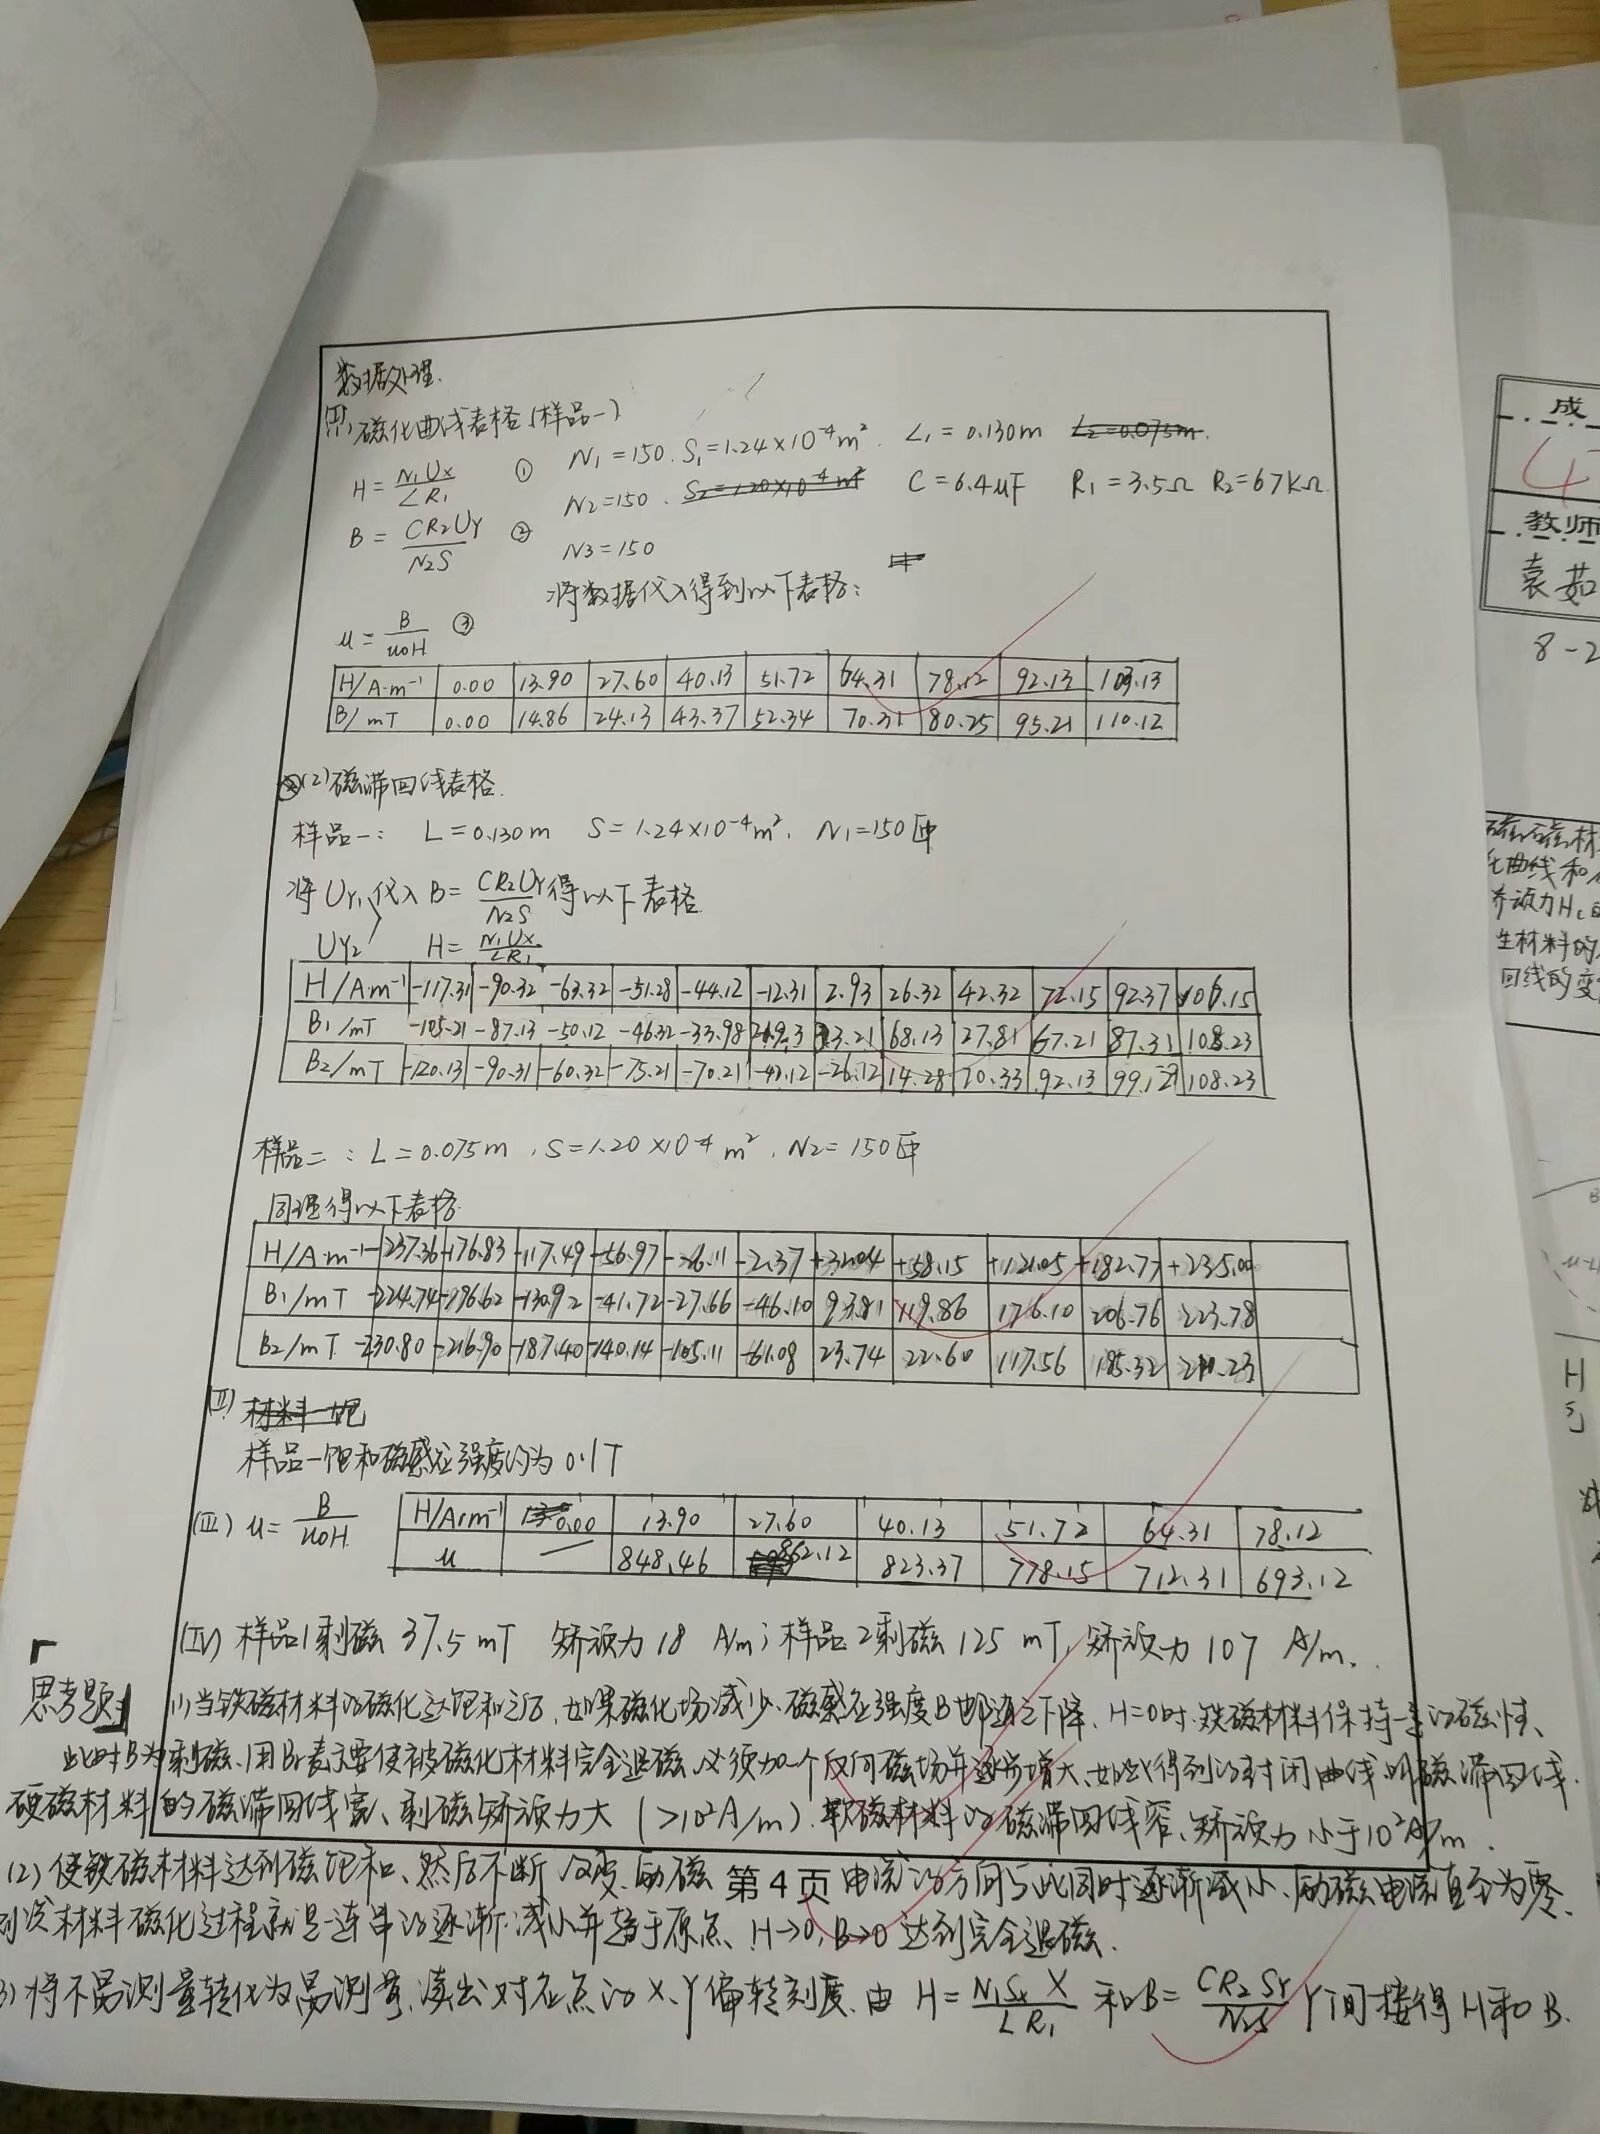 数据处理.
(I). 磁化曲线表格(样品一)
H = N₁Ux / LR₁ ① N₁=150. S₁=1.24×10⁻⁴m². L₁=0.130m L₂=0.075m.
B = CR₂UY / N₂S ② N₂=150. S₂=1.20×10⁻⁴m² C=6.4μF R₁=3.5Ω R₂=67KΩ
N3=150
将数据代入得到以下表格:
u = B / u₀H ③
H/A·m⁻¹ 0.00 13.90 27.60 40.13 51.72 64.31 78.12 92.13 103.13
B/mT 0.00 14.86 24.13 43.37 52.34 70.31 80.25 95.21 110.12
(2)磁滞回线表格.
样品一: L=0.130m S=1.24×10⁻⁴m², N₁=150匝
将UY₁代入 B= CR₂UY / N₂S 得以下表格
UY₂ H= N₁Ux / LR₁
H/A·m⁻¹ -117.31 -90.32 -63.32 -51.28 -44.12 -12.31 2.93 26.32 42.32 72.15 92.37 106.15
B₁/mT -105.21 -87.13 -50.12 -46.32 -33.98 68.13 27.81 67.21 87.31 108.23
B₂/mT -120.13 -90.31 -60.32 -75.21 -70.21 -26.12 14.28 20.33 92.13 108.23
样品二: L=0.075m, S=1.20×10⁻⁴m², N₂=150匝
同理得以下表格
H/A·m⁻¹ -237.36 -176.83 -117.49 -56.97 -26.11 -2.37 +58.15 +121.05 +182.77 +235.00
B₁/mT -224.74 -196.62 -130.92 -41.72 -27.66 -46.10 93.81 119.86 176.10 206.76 223.78
B₂/mT -230.80 -216.90 -187.40 -140.14 -105.11 -61.08 23.74 22.60 117.56 185.32
(II) 材料一饱
样品一饱和磁感应强度约为0.1T
(III) u= B / u₀H H/A·m⁻¹ 0.00 13.90 27.60 40.13 51.72 64.31 78.12
u — 848.46 862.12 823.37 778.15 712.31 693.12
(IV) 样品1剩磁 37.5 mT 矫顽力18 A/m; 样品2剩磁125 mT, 矫顽力107 A/m.
思考题
(1)当铁磁材料的磁化达饱和之后,如果磁化场减少.磁感应强度B也随之下降、H=0时.铁磁材料保持一定的磁性、
此时B为剩磁.用Br表示要使被磁化材料完全退磁.必须加一个反向磁场并逐步增大、如此得到的封闭曲线叫磁滞回线.
硬磁材料的磁滞回线宽、剩磁矫顽力大(>10²A/m).软磁材料的磁滞回线窄、矫顽力小于10²A/m.
(2)使铁磁材料达到磁饱和、然后不断改变励磁 第4页 电流的方向与此同时逐渐减小、励磁电流直至为零.
则该材料磁化过程就是一连串的逐渐减小并趋于原点、H→0,B→0达到完全退磁.
3)将不易测量转化为易测量,读出对应点的X、Y偏转刻度.由 H= N₁SxX / LR₁ 和B= CR₂SY / N₂S Y间接得H和B.
成
教师
袁茹
8-2
磁磁材
化曲线和
矫顽力Hc
生材料的
回线的变
H